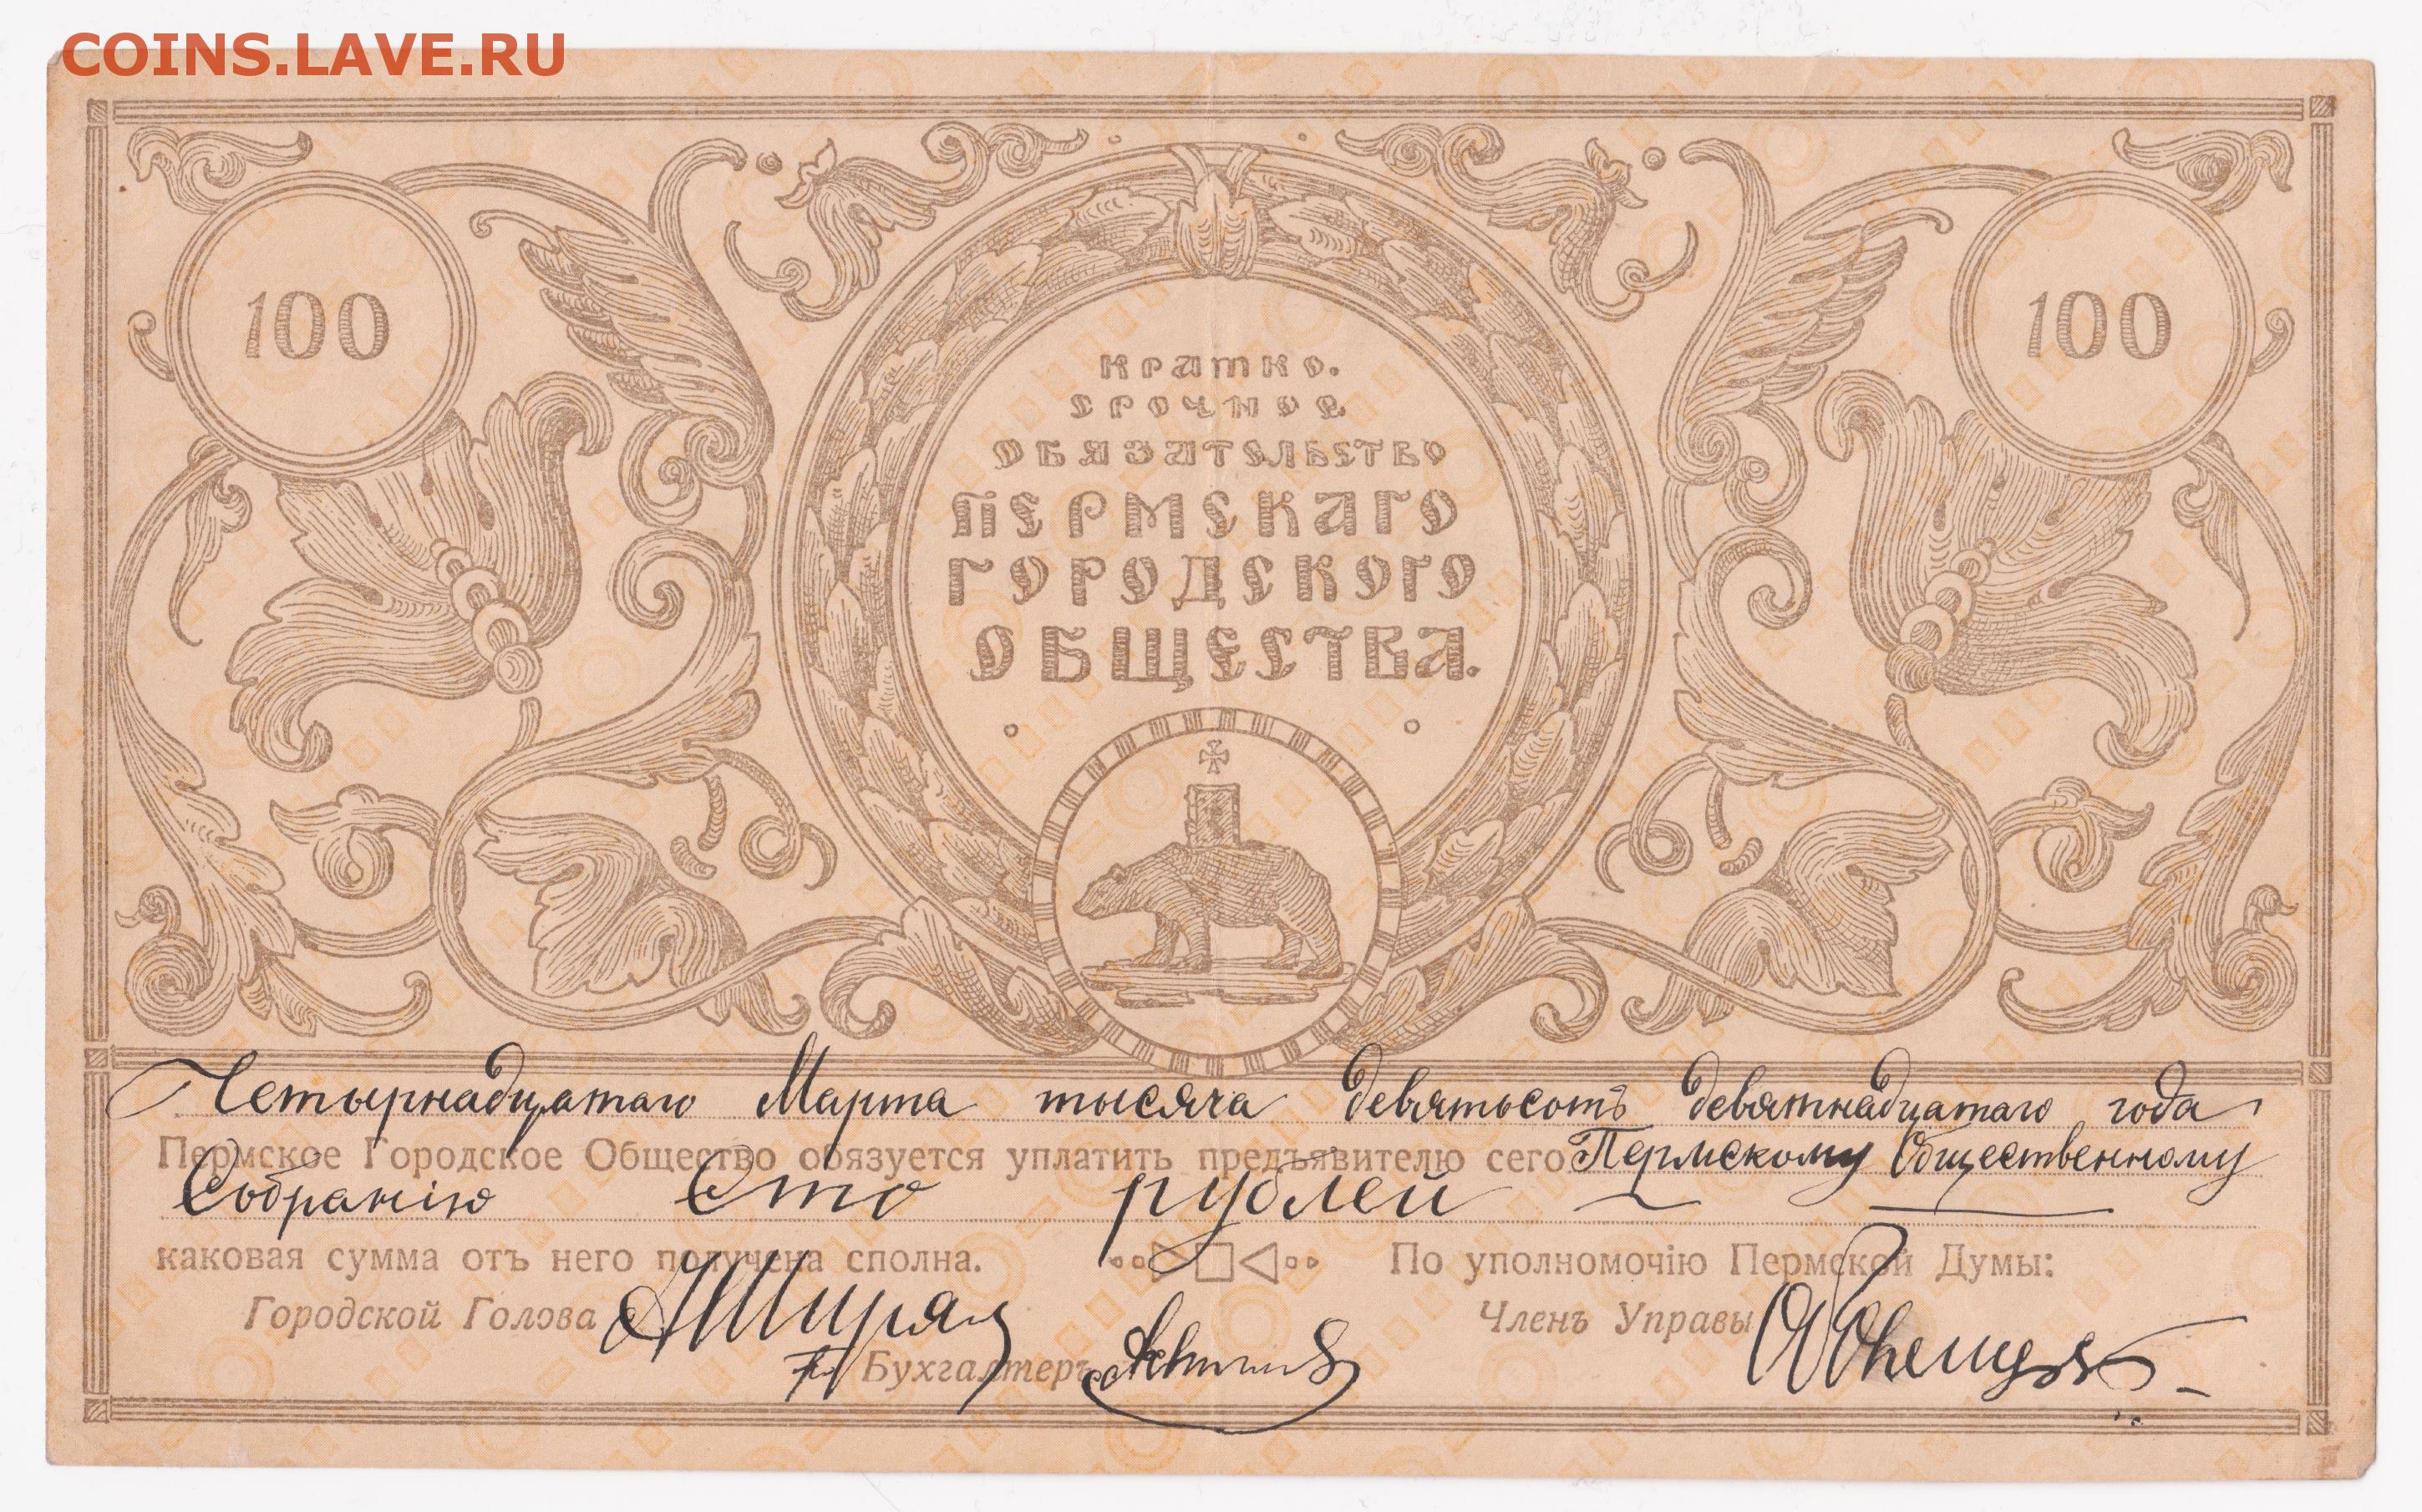 COINS.LAVE.RU
100
100
КРАТКО.
СРОЧНОЕ
ОБЯЗАТЕЛЬСТВО
ПЕРМСКАГО
ГОРОДСКОГО
ОБЩЕСТВА.
Четырнадцатаго Марта тысяча девятьсотъ девятнадцатаго года
Пермское Городское Общество обязуется уплатить предъявителю сего Пермскому Общественному
Собранію Сто рублей
каковая сумма отъ него получена сполна. По уполномочію Пермской Думы:
Городской Голова Членъ Управы
Бухгалтеръ